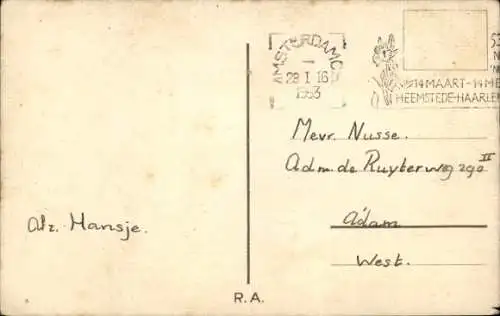 AMSTERDAM C
28 I 16
1953
14 MAART - 14 ME
HEEMSTEDE-HAARLE
Mevr. Nusse.
Adm. de Ruyterweg 290 II
A'dam
West.
Afz. Hansje.
R.A.